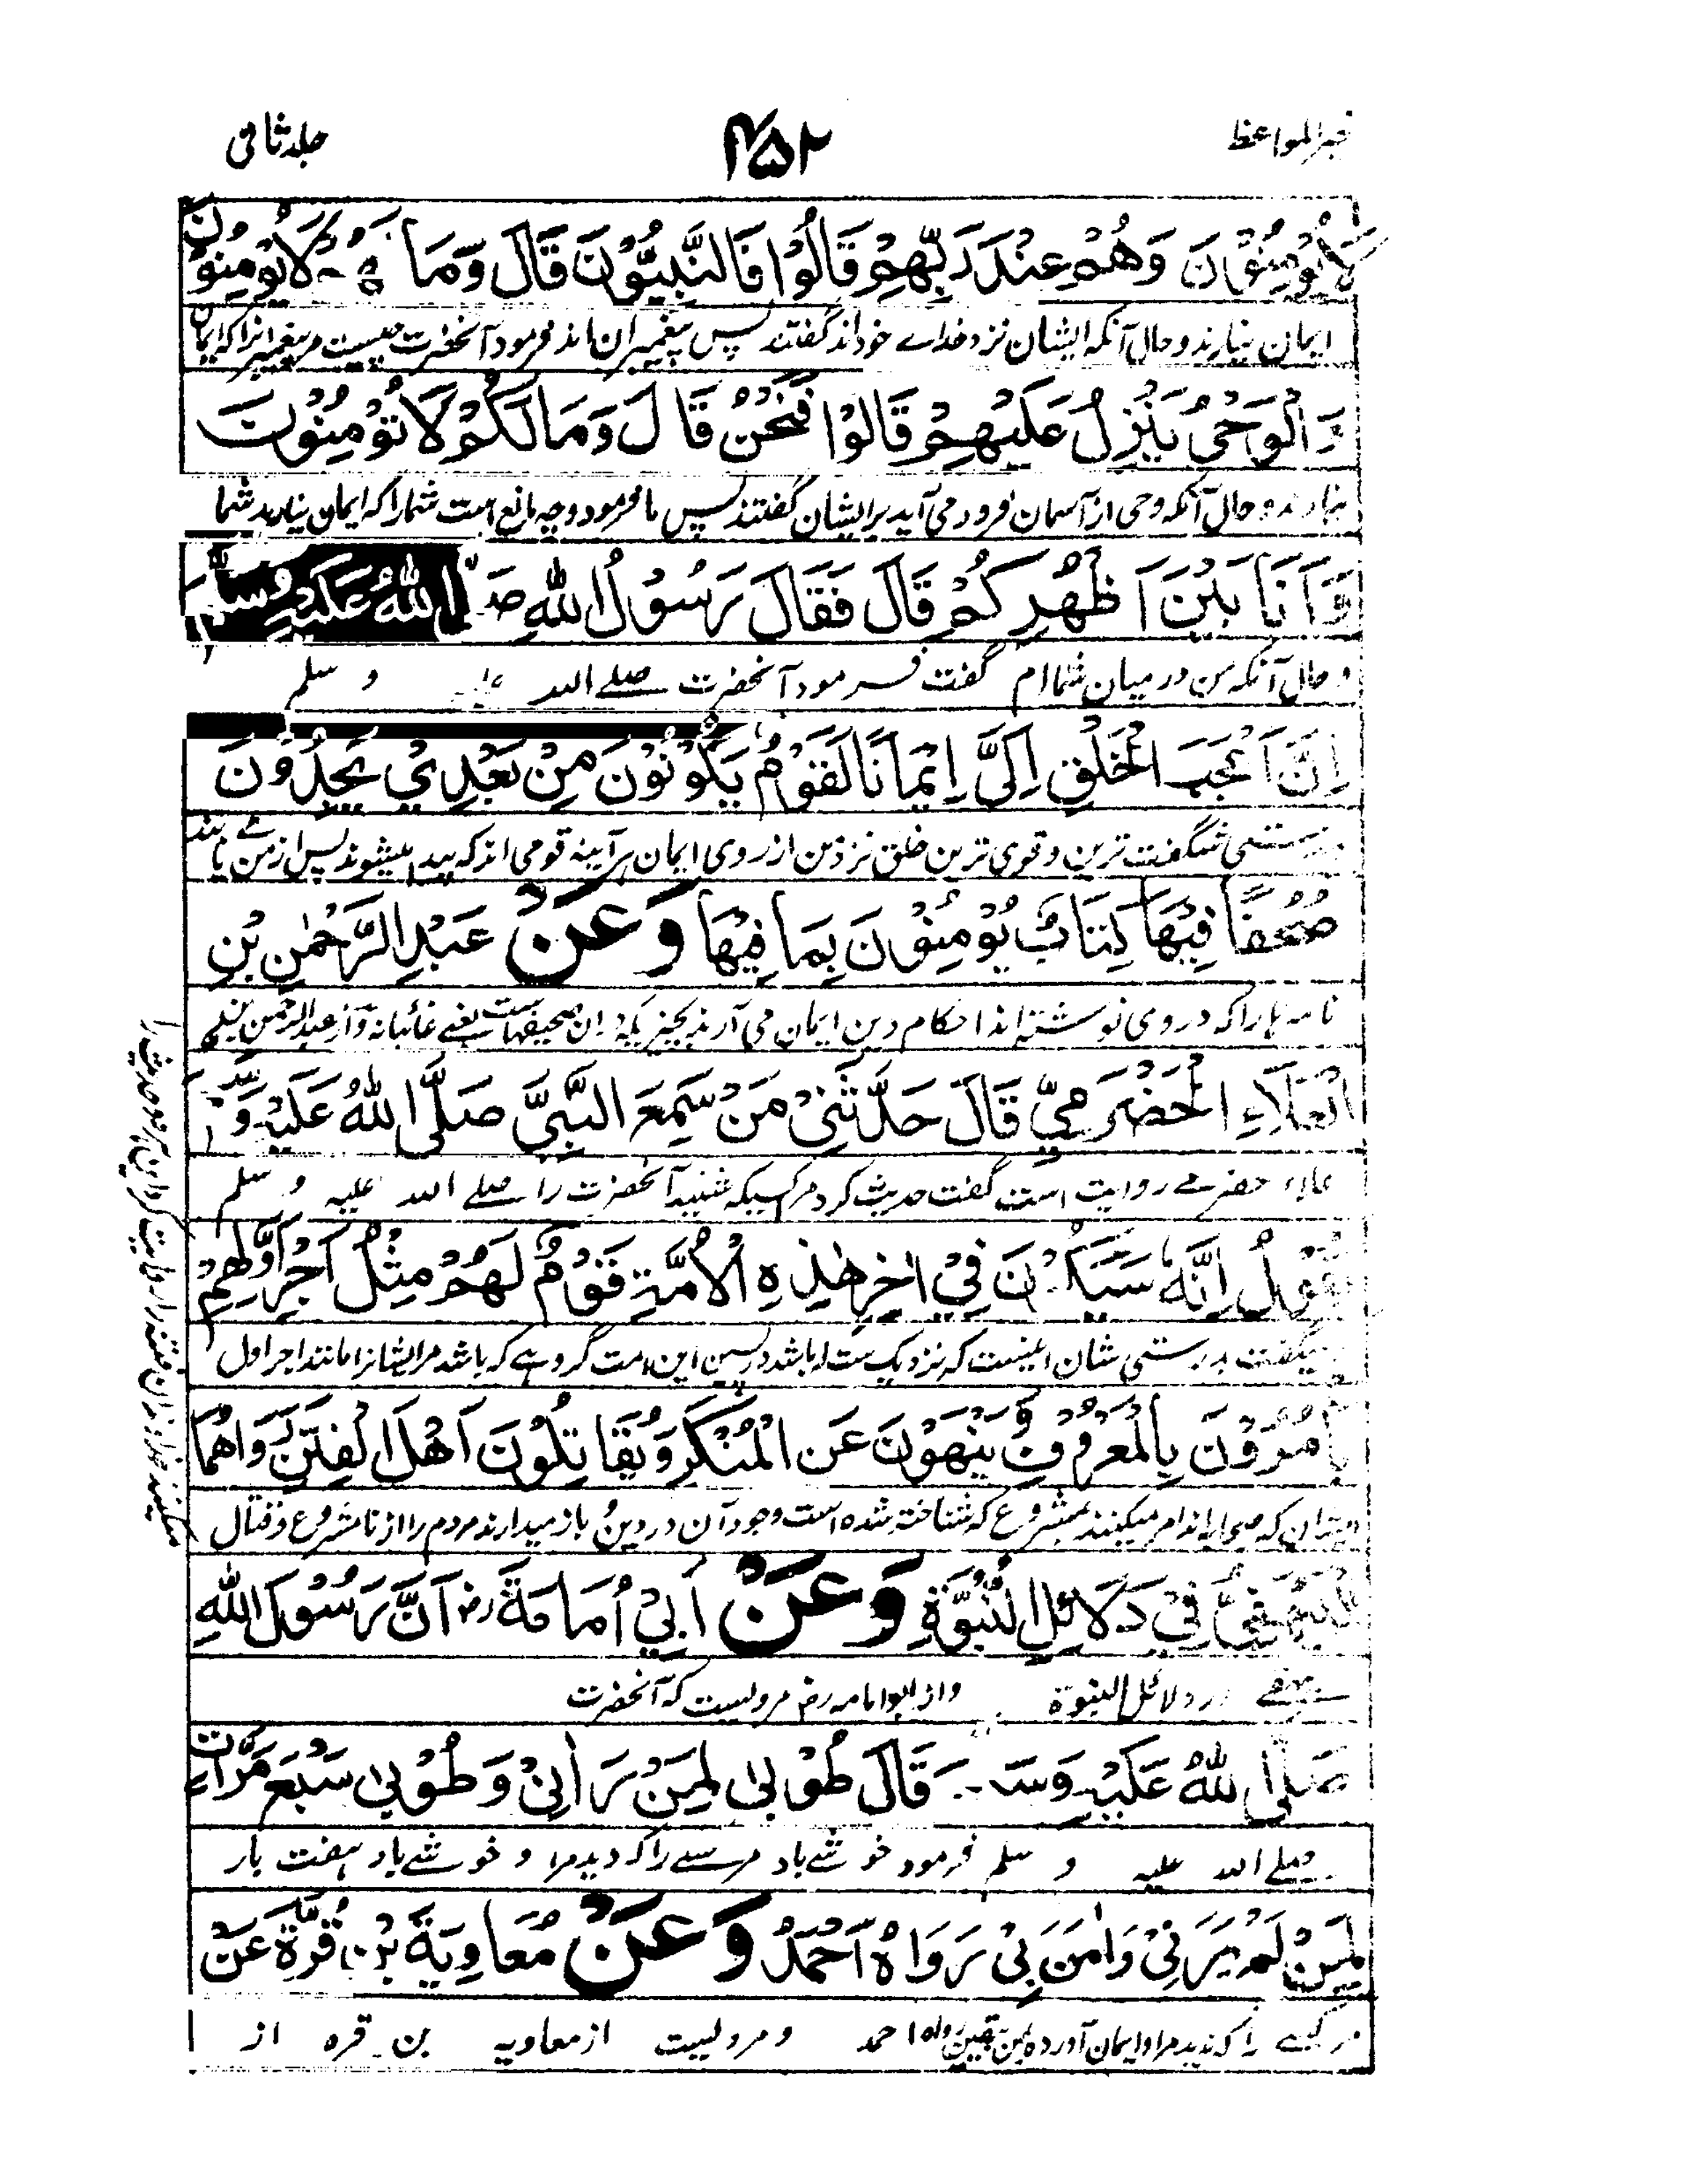 خیر المواعظ
۴۵۲
جلد ثانی
لَا يُؤْمِنُوْنَ وَهُمْ عِنْدَ رَبِّهِمْ قَالُوْا فَالنَّبِيُّوْنَ قَالَ وَمَا لَا يُؤْمِنُوْنَ
ایمان نیارند و حال آنکه ایشان نزد خدای خود اند گفتند پس پیغمبران اند فرمود آنحضرت چیست مر پیغمبرانرا که ایمان
وَالْوَحْىُ يَنْزِلُ عَلَيْهِمْ قَالُوْا فَنَحْنُ قَالَ وَمَا لَكُمْ لَا تُؤْمِنُوْنَ
نیارند و حال آنکه وحی از آسمان فرود می آید بر ایشان گفتند پس ما فرمود و چه مانع است شما را که ایمان نیارید شما
وَاَنَا بَيْنَ اَظْهُرِكُمْ قَالَ فَقَالَ رَسُوْلُ اللهِ صَلَّى اللهُ عَلَيْهِ وَسَلَّمَ
و حال آنکه من در میان شما ام گفت فرمود آنحضرت صلے الله علیه و سلم
اِنَّ اَعْجَبَ الْخَلْقِ اِلَىَّ اِيْمَانًا لَقَوْمٌ يَكُوْنُوْنَ مِنْ بَعْدِيْ يَجِدُوْنَ
شگفت ترین و قوی ترین خلق نزد من از روی ایمان هر آینه قومی اند که پیدا میشوند پس از من یابند
صُحُفًا فِيْهَا كِتَابٌ يُؤْمِنُوْنَ بِمَا فِيْهَا وَعَنْ عَبْدِ الرَّحْمٰنِ بْنِ
نامه ها را که در وی نوشته اند احکام دین ایمان می آرند بچیزیکه دران صحیفهاست یعنے غائبانه و از عبد الرحمن بن
الْعَلَاءِ الْحَضْرَمِيِّ قَالَ حَدَّثَنِيْ مَنْ سَمِعَ النَّبِيَّ صَلَّى اللهُ عَلَيْهِ وَسَلَّمَ
علاء حضرمے روایت است گفت حدیث کرد مر کسیکه شنید آنحضرت را صلے الله علیه و سلم
يَقُوْلُ اِنَّهٗ سَيَكُوْنُ فِيْ اٰخِرِ هٰذِهِ الْاُمَّةِ قَوْمٌ لَهُمْ مِثْلُ اَجْرِ اَوَّلِهِمْ
میگفت بدرستی شان اینست که نزدیک ست که باشد در پسین این امت گروہے که باشد مر ایشانرا مانند اجر اول
يَاْمُرُوْنَ بِالْمَعْرُوْفِ وَيَنْهَوْنَ عَنِ الْمُنْكَرِ وَيُقَاتِلُوْنَ اَهْلَ الْفِتَنِ رَوَاهُمَا
ایشان که صحابه اند امر میکنند بمشروع که شناخته شده است وجود آن در دین و باز میدارند مردم را از نامشروع و قتال
الْبَيْهَقِيُّ فِيْ دَلَائِلِ النُّبُوَّةِ وَعَنْ اَبِيْ اُمَامَةَ رض اَنَّ رَسُوْلَ اللهِ
بیهقے در دلائل النبوة و از ابو امامه رض مرویست که آنحضرت
صَلَّى اللهُ عَلَيْهِ وَسَلَّمَ قَالَ طُوْبٰى لِمَنْ رَاٰنِيْ وَطُوْبٰى سَبْعَ مَرَّاتٍ
صلے الله علیه و سلم فرمود خوشے باد مر کسے را که دید مرا و خوشے باد هفت بار
لِمَنْ لَمْ يَرَنِيْ وَاٰمَنَ بِيْ رَوَاهُ اَحْمَدُ وَعَنْ مُعَاوِيَةَ بْنِ قُرَّةَ عَنْ
مر کسے را که ندید مرا و ایمان آورده رواه احمد و مرویست از معاویه بن قره از